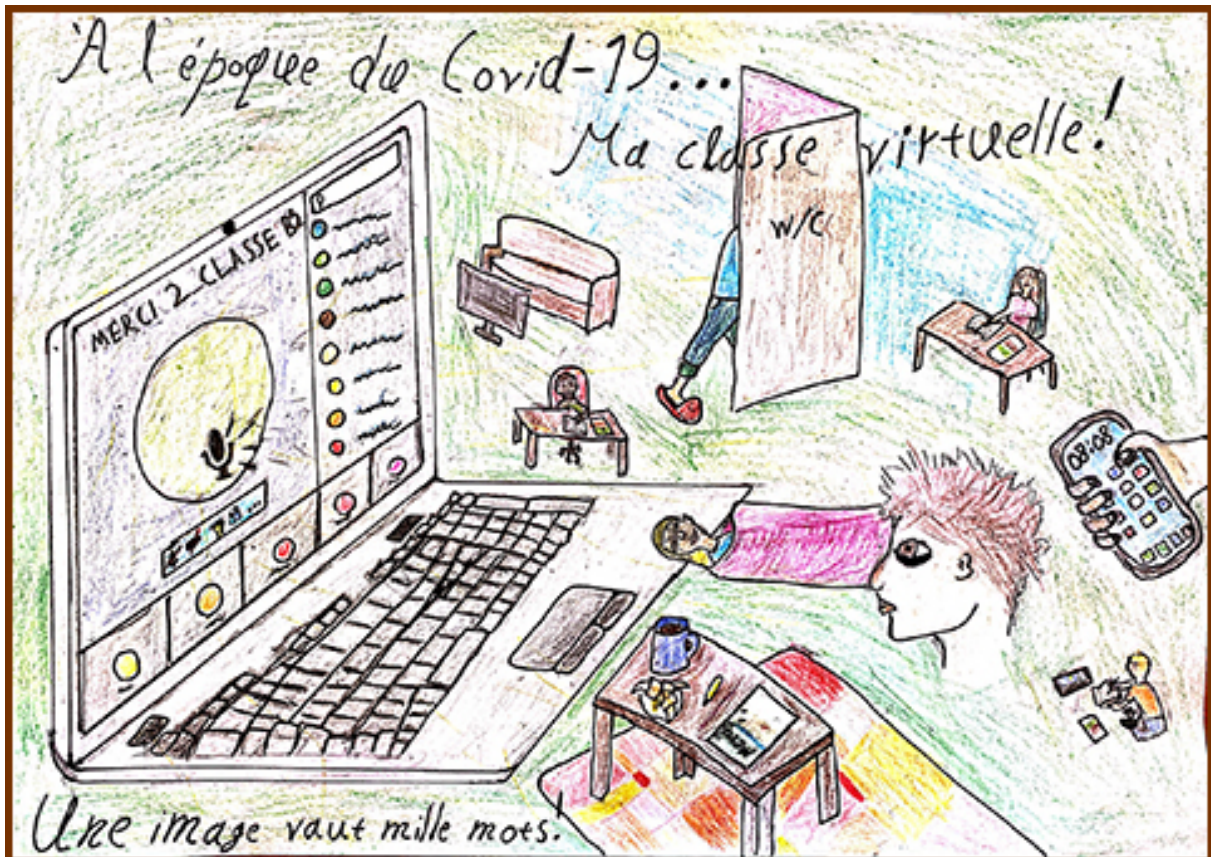 À l'époque du Covid-19...
Ma classe virtuelle!
MERCI 2 CLASSE B2
W/C
08:08
Une image vaut mille mots!